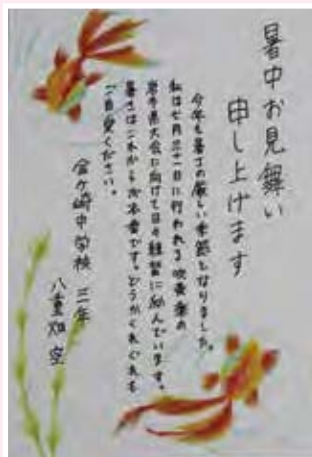 暑中お見舞い
申し上げます
今年も暑さの厳しい季節となりました。
私は七月三十一日に行われる吹奏楽の
岩手県大会に向けて日々練習に励んでいます。
暑さはこれからが本番です。どうかくれぐれも
ご自愛ください。
金ケ崎中学校 三年
八重畑 空